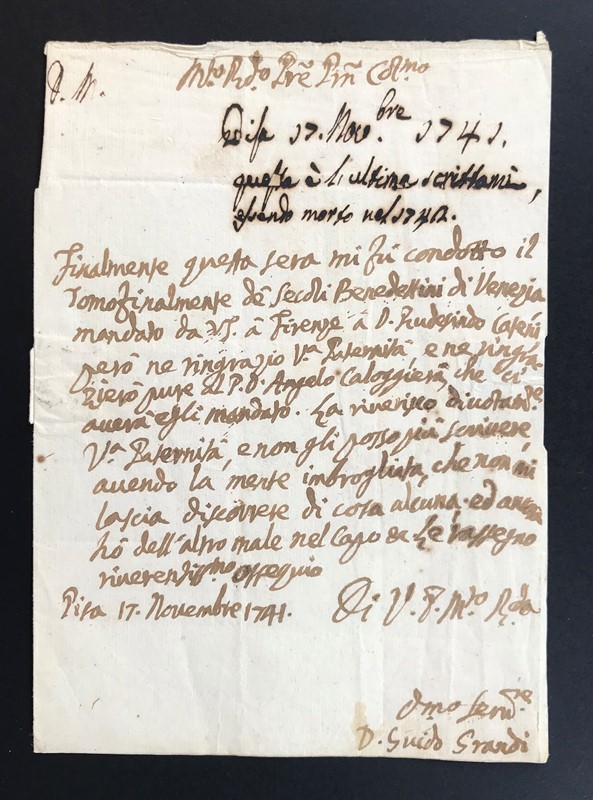 D. M.
Mto Rdo Pre Prn Colmo
Pisa 17. Novbre 1741.
questa è l'ultima scrittami,
essendo morto nel 1742.
Finalmente questa sera mi fù condotto il
Tomo finalmente de Secoli Benedettini di Venezia
mandato da à Firenze à D. Rudesindo
però ne ringrazio Va Paternità e ne ringra-
zierò pure al P. D. Angelo Caloggierà, che ci
averà egli mandato. La riverisco divotamte
Va Paternità, e non gli posso più scrivere
avendo la mente imbrogliata, che non mi
lascia discorrere di cosa alcuna. ed
hò dell'altro male nel Capo Le rassegno
riverentissmo ossequio
Pisa 17. Novembre 1741. Di V. P. Mto Rda
D. Guido Grandi